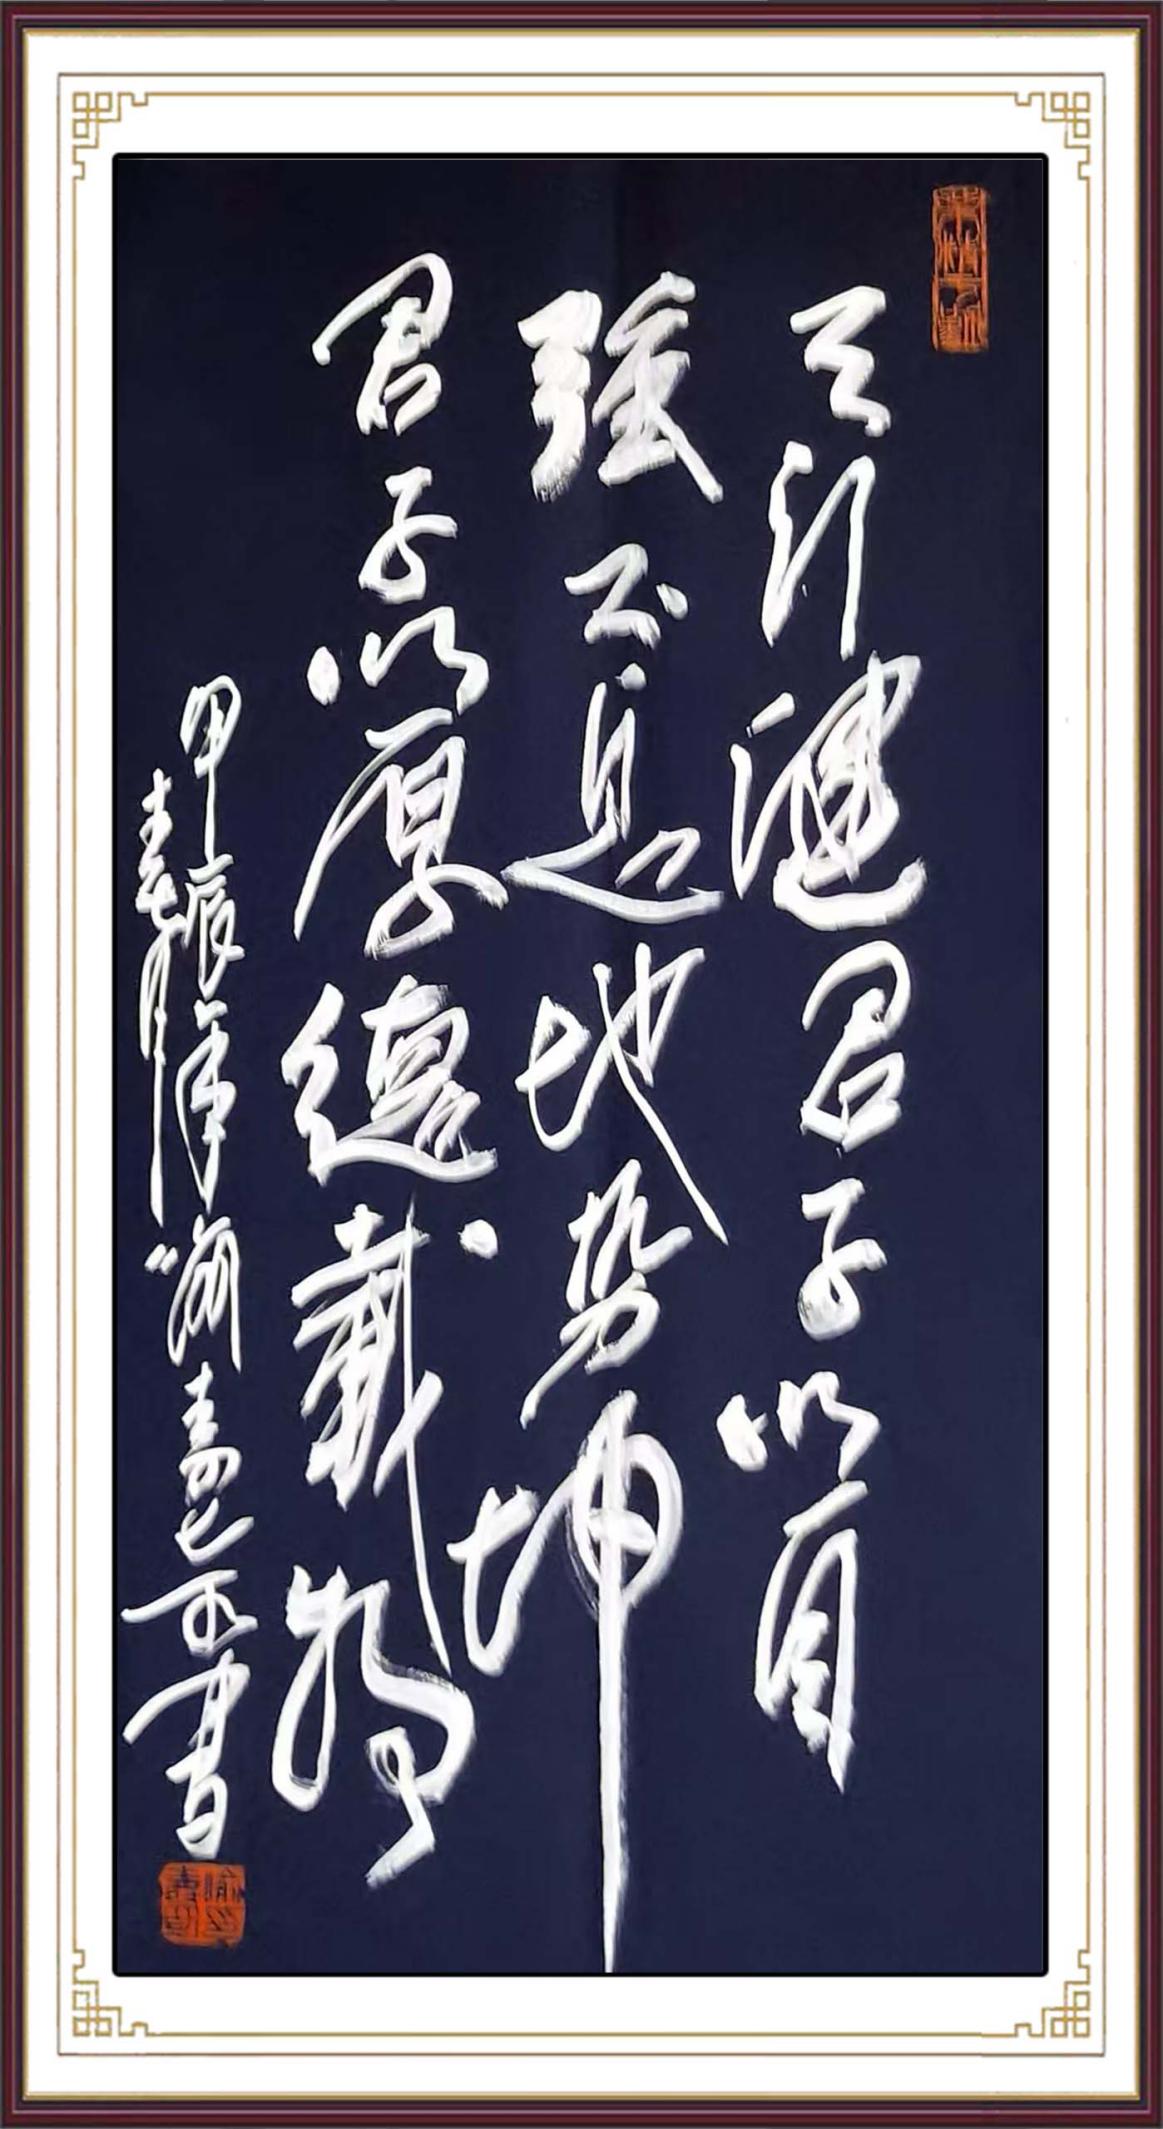 天行健君子以自
强不息地势坤
君子以厚德载物
甲辰年
春月
书